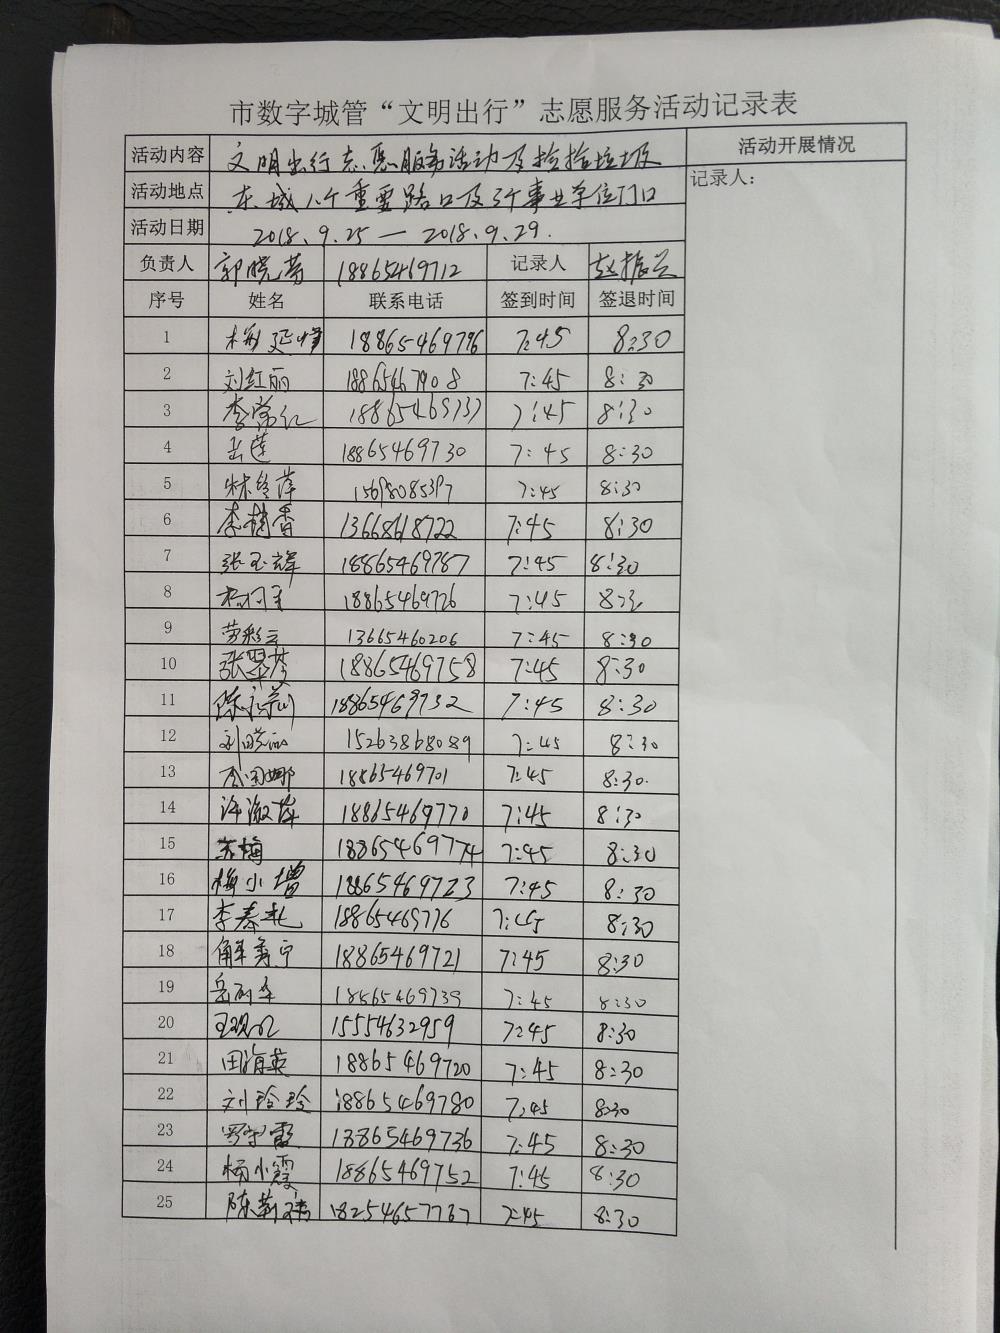 市数字城管“文明出行”志愿服务活动记录表
活动内容 文明出行志愿服务活动及捡拾垃圾 活动开展情况
活动地点 东城八个重要路口及3个事业单位门口 记录人：
活动日期 2018.9.25—2018.9.29.
负责人 郭晓芳 18865469712 记录人 赵振兰
序号 姓名 联系电话 签到时间 签退时间
1 18865469796 7:45 8:30
2 刘红丽 18865467908 7:45 8:30
3 李常红 18865469737 7:45 8:30
4 岳莲 18865469730 7:45 8:30
5 林铃萍 15698085397 7:45 8:30
6 李桂香 13668618722 7:45 8:30
7 张玉辉 18865469787 7:45 8:30
8 18865469726 7:45 8:30
9 劳彩云 13665460206 7:45 8:30
10 张翠芬 18865469758 7:45 8:30
11 18865469732 7:45 8:30
12 刘晓丽 15263868089 7:45 8:30
13 18865469701 7:45 8:30.
14 许淑萍 18865469770 7:45 8:30
15 苏梅 18865469774 7:45 8:30
16 梅小增 18865469723 7:45 8:30
17 李春礼 18865469776 7:45 8:30
18 解寿宁 18865469721 7:45 8:30
19 岳丽华 18865469739 7:45 8:30
20 15554632959 7:45 8:30
21 田海英 18865469720 7:45 8:30
22 刘玲玲 18865469780 7:45 8:30
23 罗守霞 18865469736 7:45 8:30
24 杨小霞 18865469752 7:45 8:30
25 18254657767 7:45 8:30